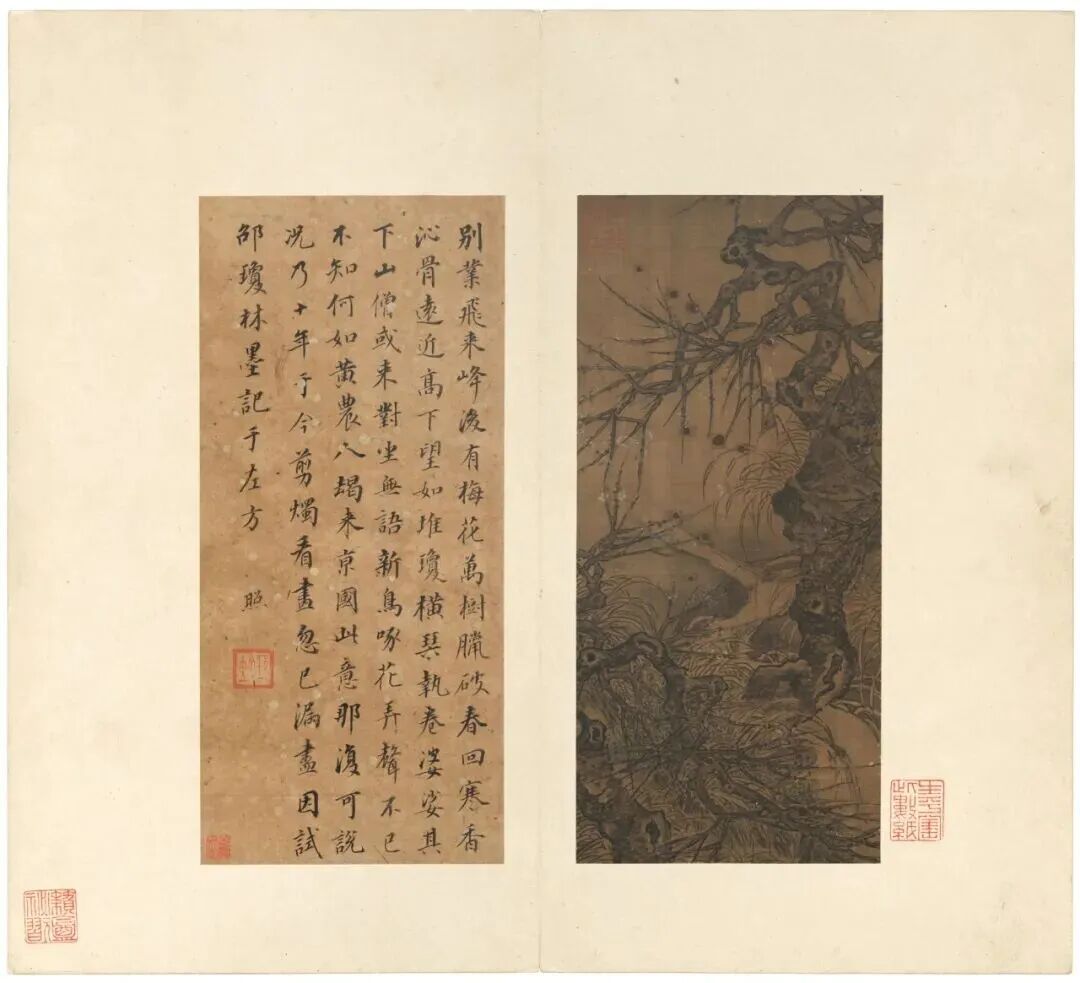 別業飛来峰後有梅花萬樹臘破春回寒香
沁骨遠近高下望如堆瓊橫琴執卷婆娑其
下山僧或来對坐無語新鳥啄花弄聲不已
不知何如黄農人朅来京國此意耶復可説
况乃十年于今剪燭看畫忽已漏盡因試
邵瓊林墨記于左方
照